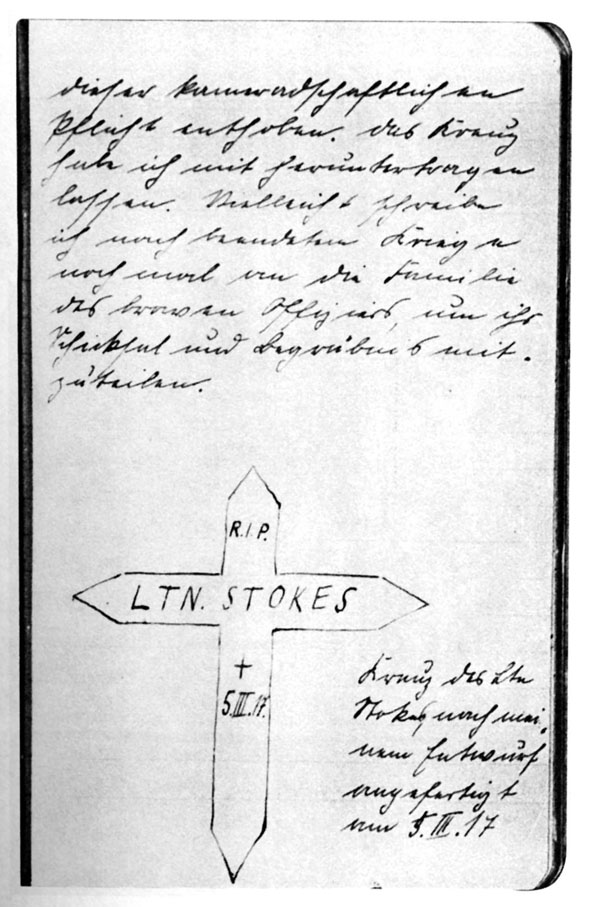 dieser kameradschaftlichen
Pflicht enthoben. Das Kreuz
habe ich mit heruntertragen
lassen. Vielleicht schreibe
ich nach beendetem Kriege
noch mal an die Familie
des braven Offiziers, um ihr
Schicksal und Begräbnis mit-
zuteilen.
R.I.P.
LTN. STOKES
†
5.III.17.
Kreuz des Ltn
Stokes, nach mei-
nem Entwurf
angefertigt
am 5.III.17